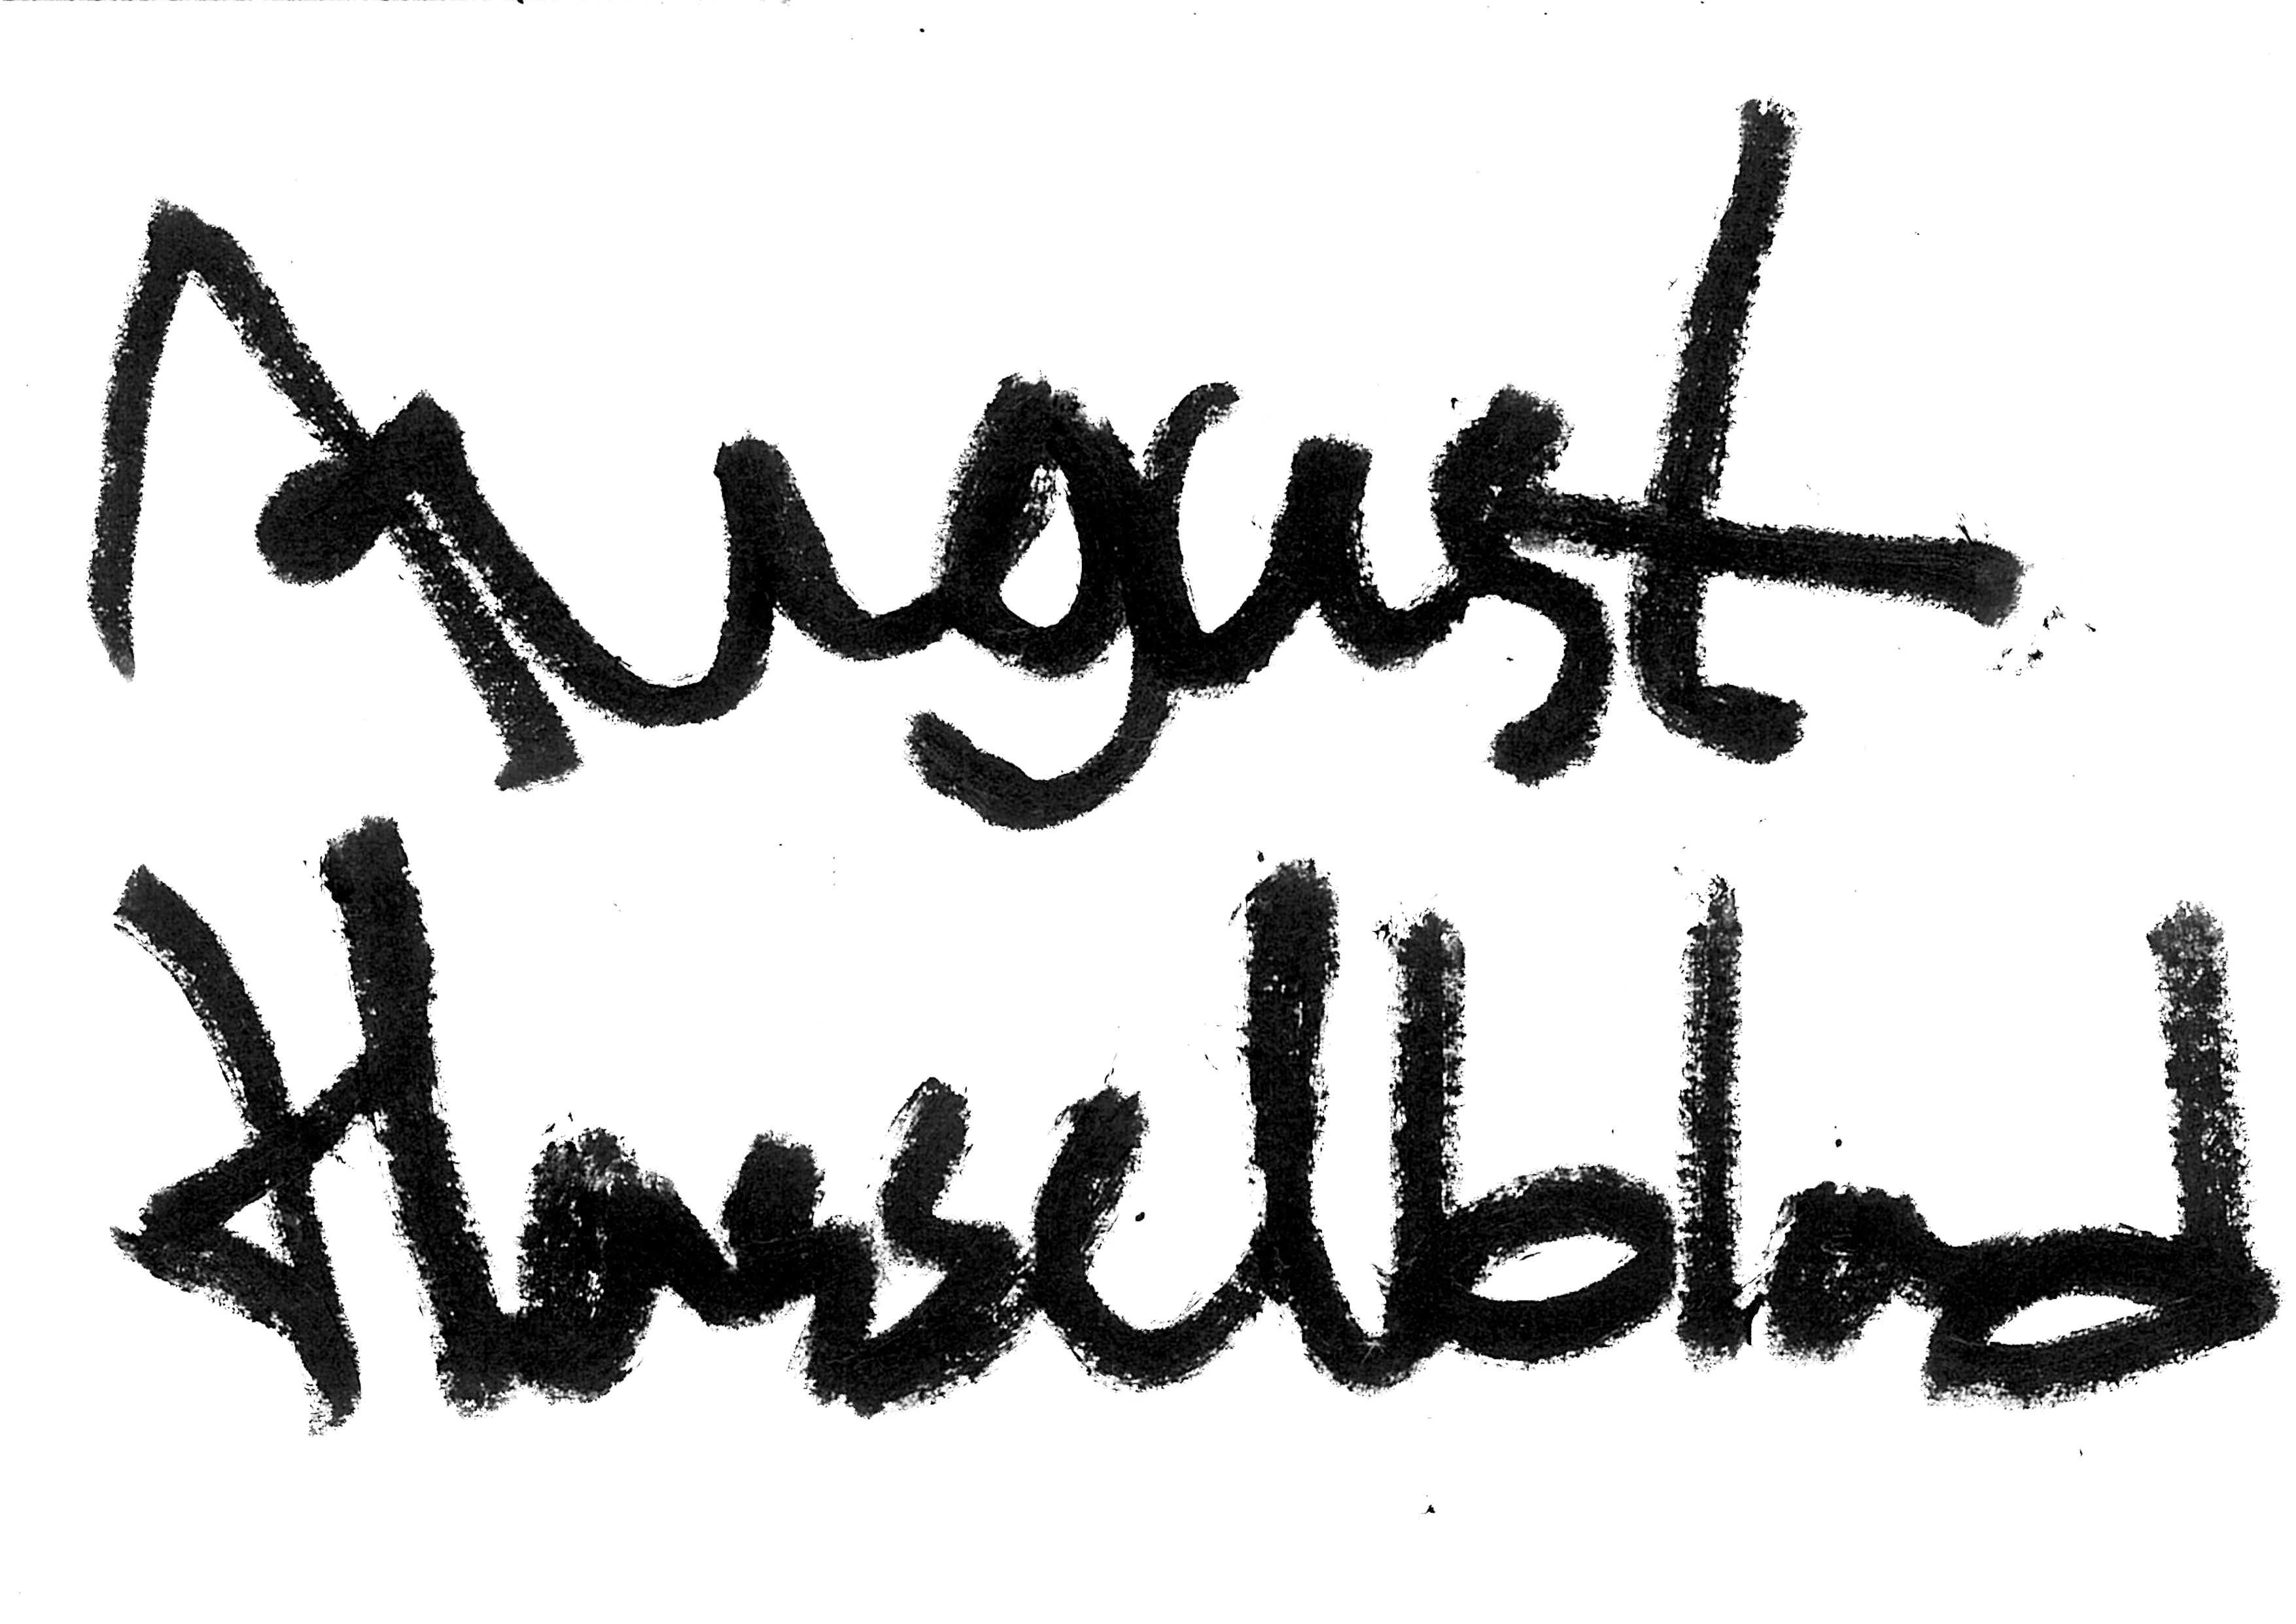 August
Hasselblad